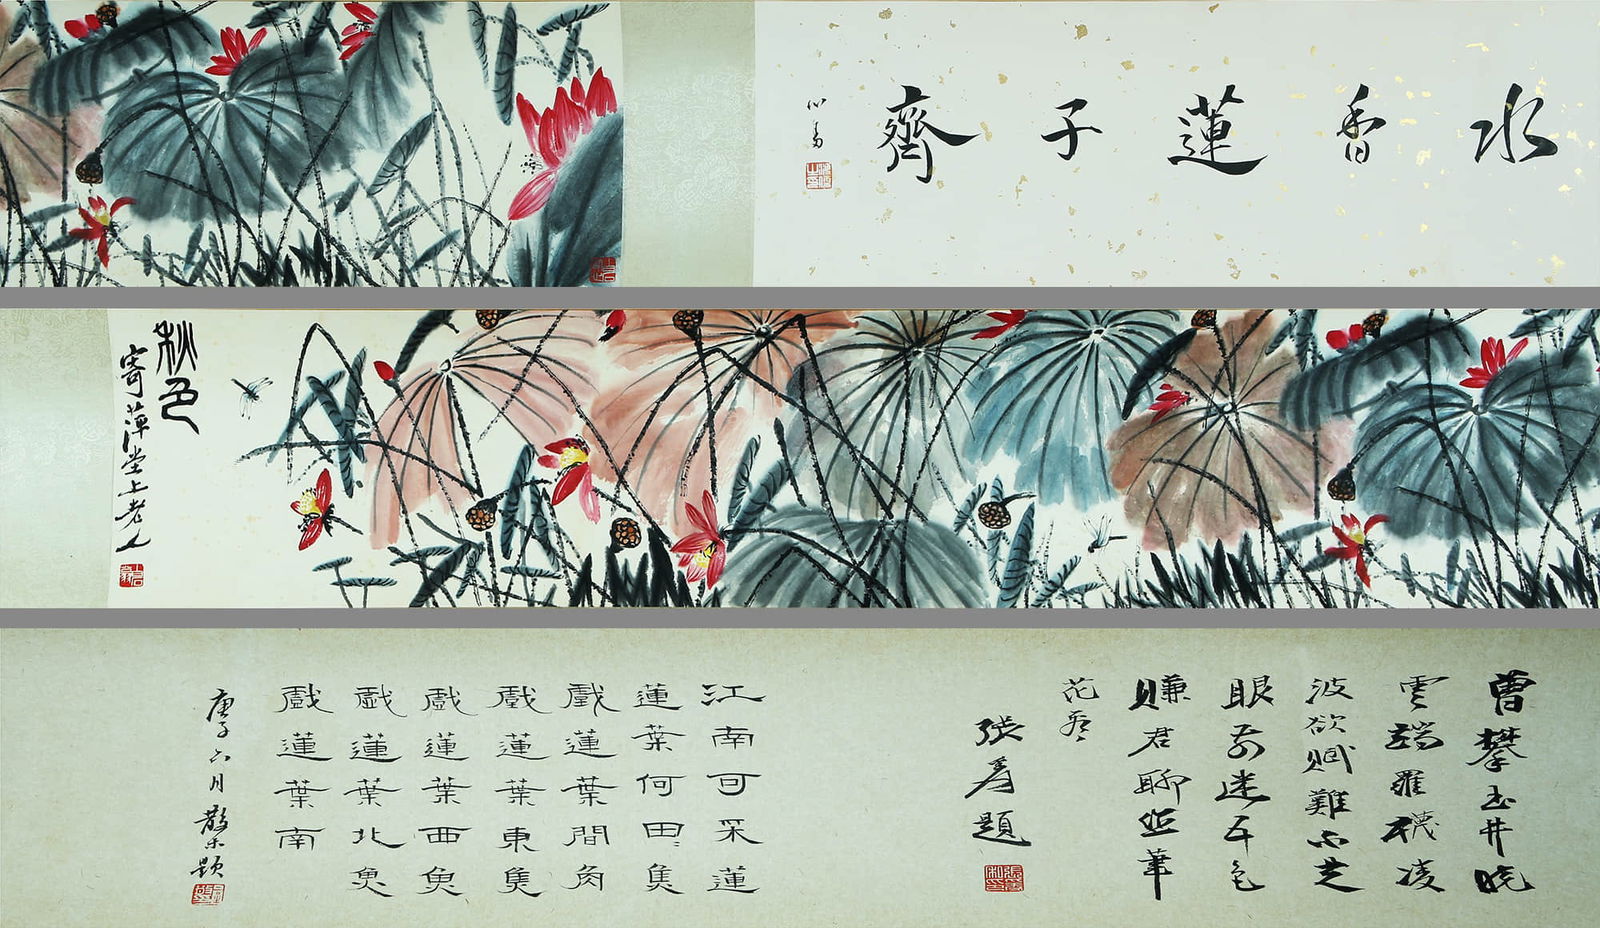 水香蓮子齊
心畬
秋色
寄萍堂上老人
曾攀玉井曉
雲端羅襪凌
波欲賦難不是
眼前迷五色
賺君聊照筆
花看
張爰題
江南可采蓮
蓮葉何田=魚
戲蓮葉間魚
戲蓮葉東魚
戲蓮葉西魚
戲蓮葉北魚
戲蓮葉南
庚子六月散木題